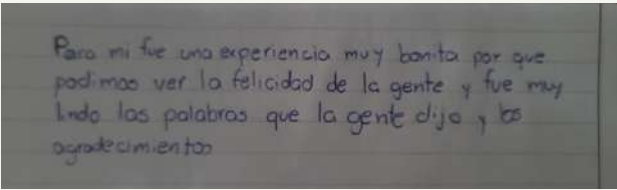 Para mi fue una experiencia muy bonita por que
podimos ver la felicidad de la gente y fue muy
lindo las palabras que la gente dijo y los
agradecimientos